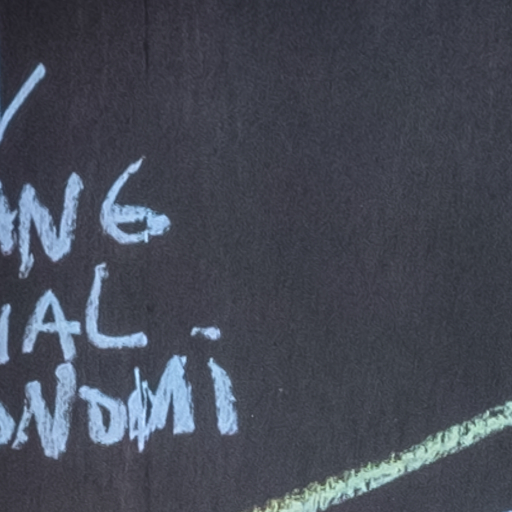 ANG
IAL
ONOMI